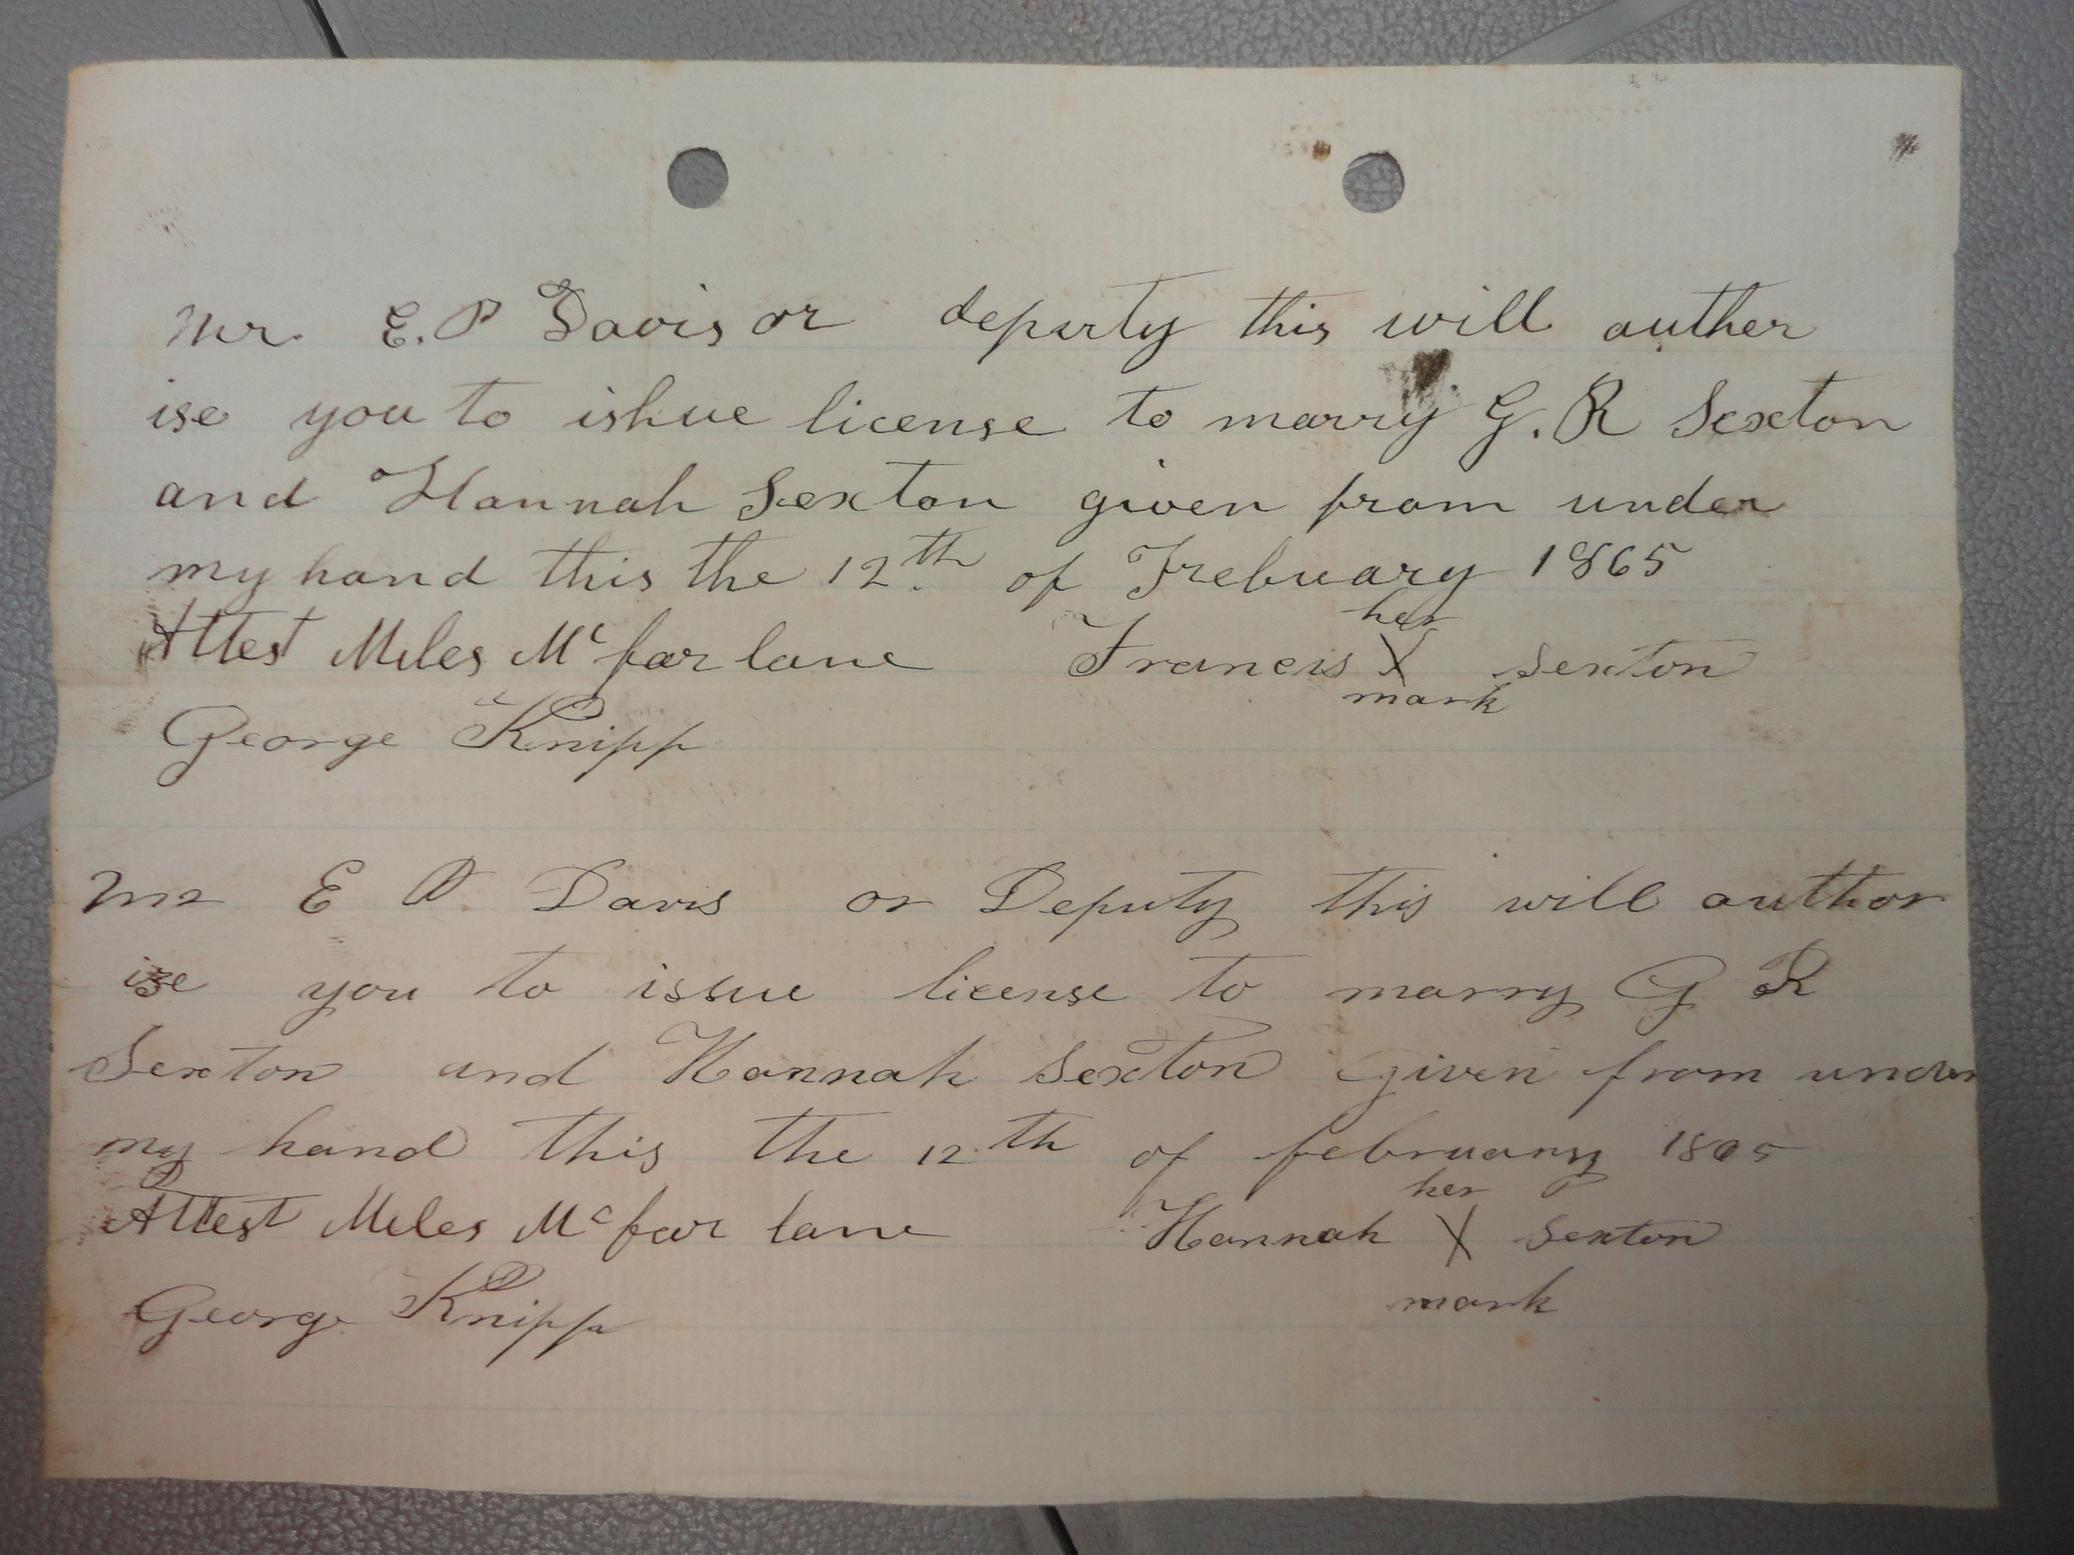 Mr. E. P Davis or deputy this will auther
ise you to ishue license to marry G. R Sexton
and Hannah Sexton given from under
my hand this the 12th of Frebuary 1865
her
Attest Miles Mc farlane Francis X Sexton
mark
George Knipp
Mr E P. Davis or Deputy this will author
ize you to issue license to marry G R
Sexton and Hannah Sexton Given from under
my hand this the 12th of february 1865
her
Attest Miles Mc far lane Hannah X Sexton
mark
George Knipp